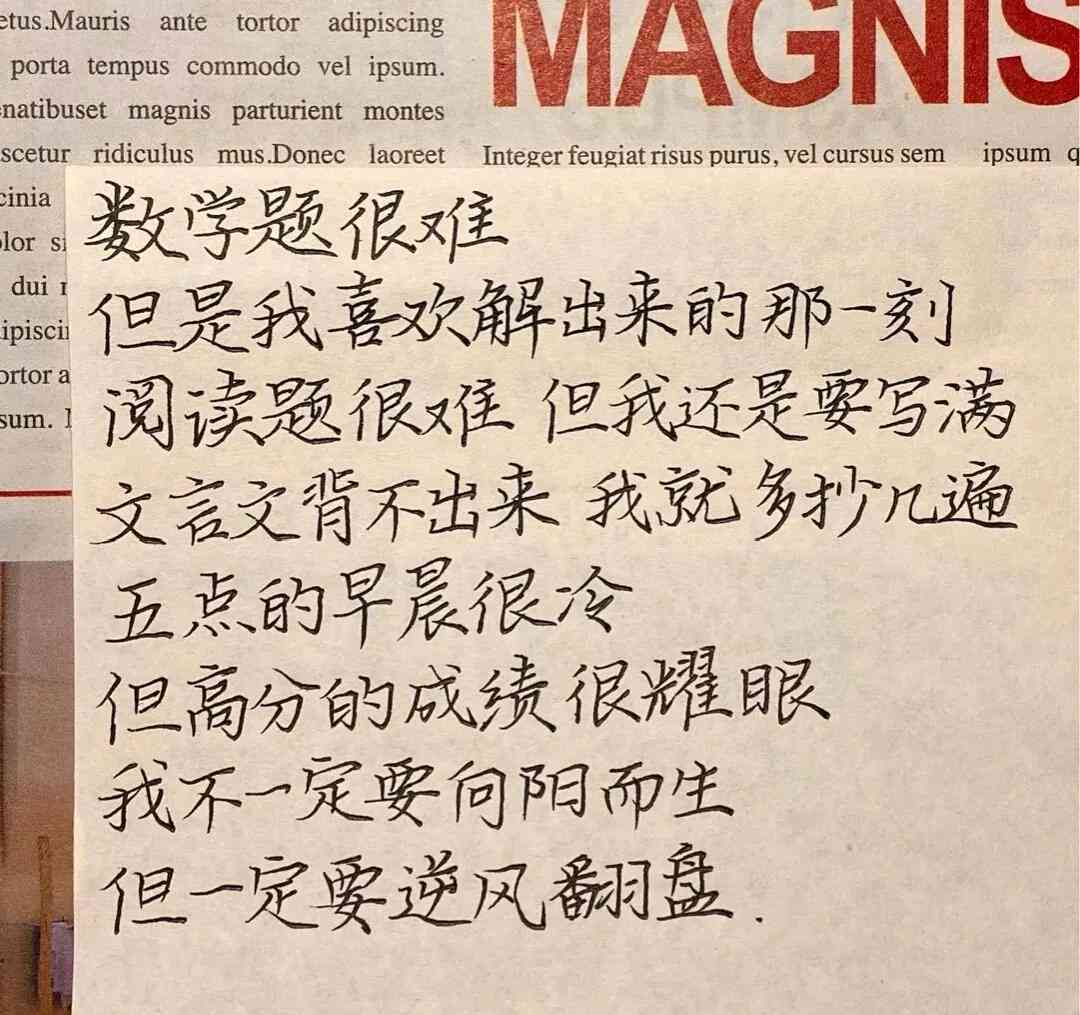 etus.Mauris ante tortor adipiscing
porta tempus commodo vel ipsum.
natibuset magnis parturient montes
scetur ridiculus mus.Donec laoreet
MAGNIS
Integer feugiat risus purus, vel cursus sem ipsum q
cinia
lor si
dui
ipiscin
ortor a
sum.
数学题很难
但是我喜欢解出来的那一刻
阅读题很难 但我还是要写满
文言文背不出来 我就多抄几遍
五点的早晨很冷
但高分的成绩很耀眼
我不一定要向阳而生
但一定要逆风翻盘.